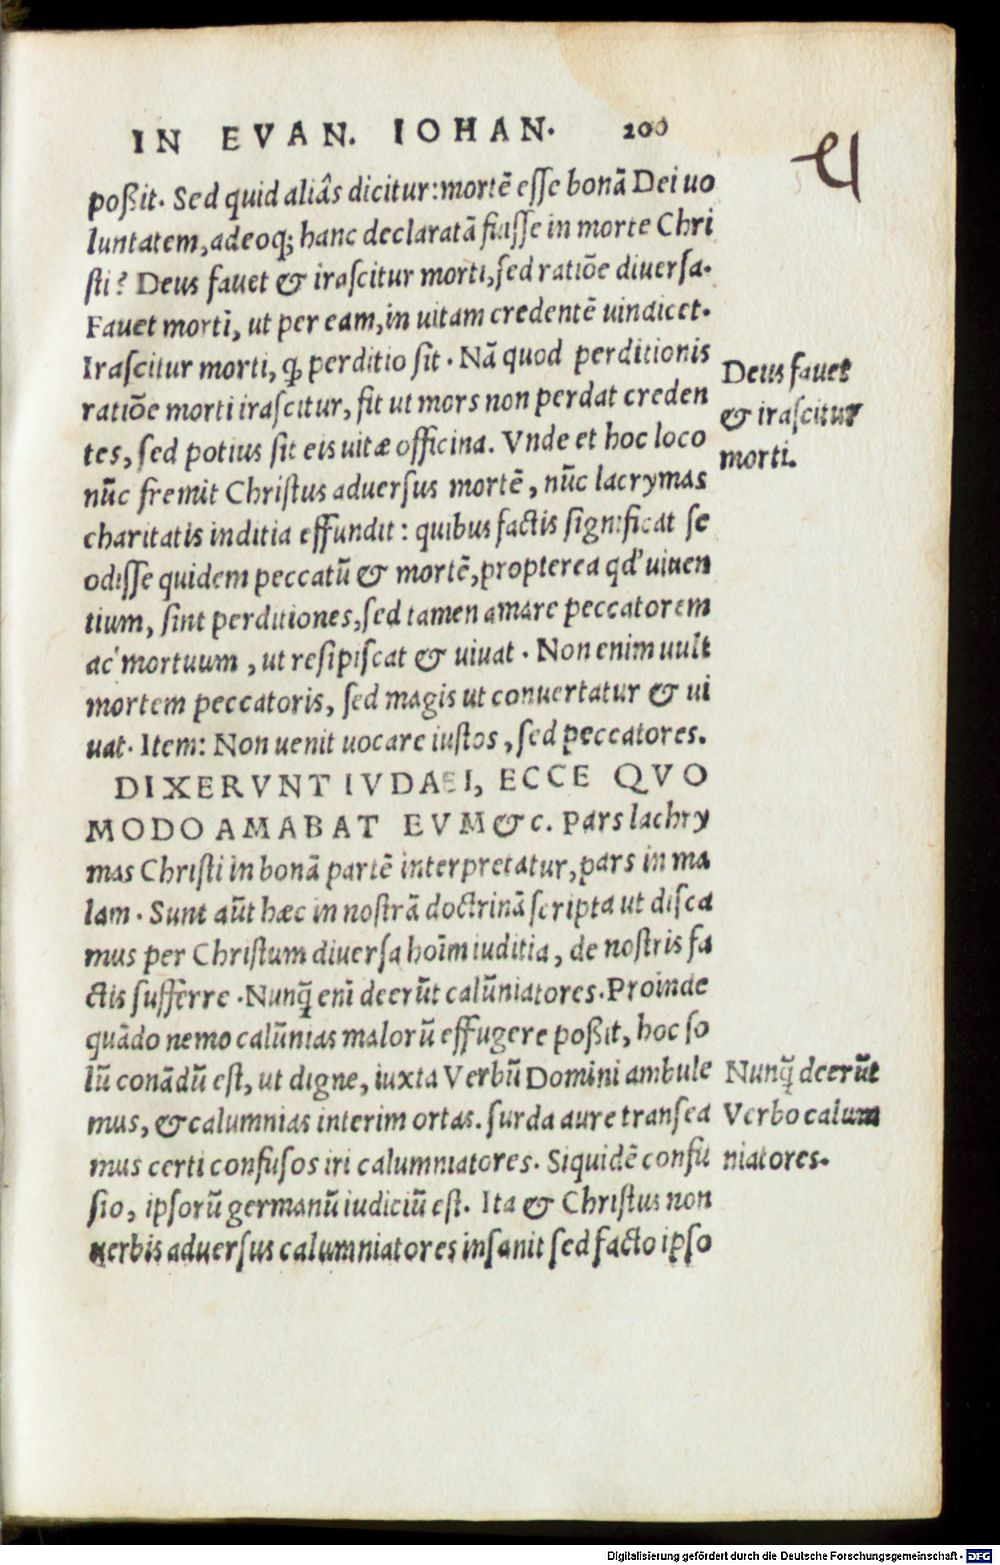 IN EVAN. IOHAN. 200
poßit. Sed quid aliâs dicitur: mortē esse bonā Dei uo
luntatem, adeoq; hanc declaratā fuisse in morte Chri
sti? Deus fauet & irascitur morti, sed ratiōe diuersa.
Fauet morti, ut per eam, in uitam credentē uindicet.
Irascitur morti, ꝙ perditio sit. Nā quod perditionis
ratiōe morti irascitur, fit ut mors non perdat creden
tes, sed potius sit eis uitæ officina. Vnde et hoc loco
nūc fremit Christus aduersus mortē, nūc lacrymas
charitatis inditia effundit: quibus factis significat se
odisse quidem peccatū & mortē, propterea qd' uiuen
tium, sint perditiones, sed tamen amare peccatorem
ac mortuum, ut resipiscat & uiuat. Non enim uult
mortem peccatoris, sed magis ut conuertatur & ui
uat. Item: Non uenit uocare iustos, sed peccatores.
DIXERVNT IVDAEI, ECCE QVO
MODO AMABAT EVM &c. Pars lachry
mas Christi in bonā partē interpretatur, pars in ma
lam. Sunt aūt hæc in nostrā doctrinā scripta ut disca
mus per Christum diuersa hoīm iuditia, de nostris fa
ctis sufferre. Nunq̄ enī deerūt calūniatores. Proinde
quādo nemo calūnias malorū effugere poßit, hoc so
lū conādū est, ut digne, iuxta Verbū Domini ambule
mus, & calumnias interim ortas. surda aure transea
mus certi confusos iri calumniatores. Siquidē confu
sio, ipsorū germanū iudiciū est. Ita & Christus non
uerbis aduersus calumniatores insanit sed facto ipso
Deus fauet
& irascitur
morti.
Nunq̄ deerūt
Verbo calum
niatores.
Digitalisierung gefördert durch die Deutsche Forschungsgemeinschaft - DFG